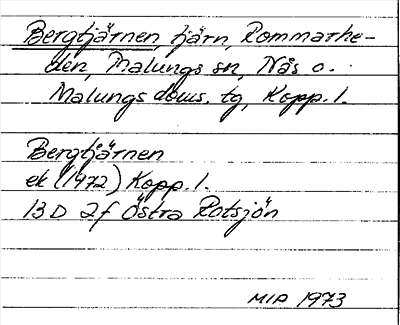 Bergtjärnen, tjärn, Rommarhe-
den, Malungs sn, Nås o.
Malungs doms. tg, Kopp. l.
Bergtjärnen
ek (1972) Kopp. l.
13 D 2f Östra Rotsjön
MIA 1973